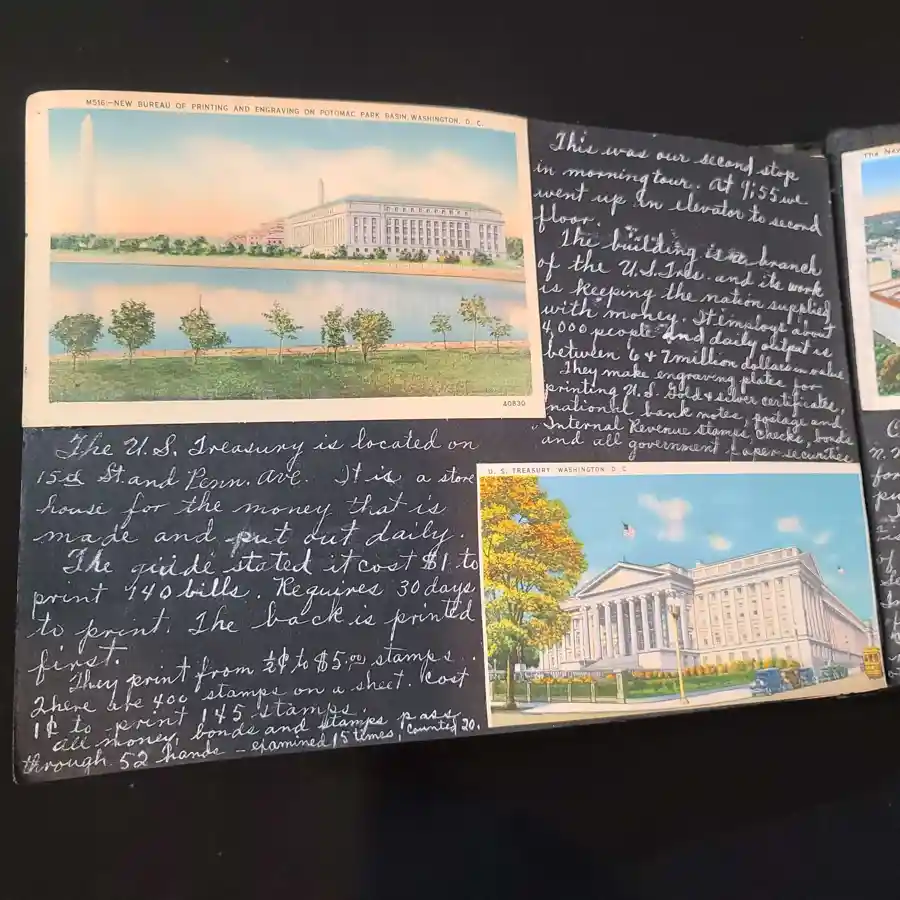 M516:-NEW BUREAU OF PRINTING AND ENGRAVING ON POTOMAC PARK BASIN, WASHINGTON, D. C.
40830
This was our second stop
in morning tour. At 9:55 we
went up in elevator to second
floor.
The building is a branch
of the U.S. Treas. and its work
is keeping the nation supplied
with money. It employs about
4,000 people and daily output is
between 6 & 7 million dollars in value
They make engraving plates for
printing U.S. Gold & silver certificates,
national bank notes, postage and
Internal Revenue stamps, checks, bonds
and all government paper securities
The U.S. Treasury is located on
15th St. and Penn. Ave. It is a store
house for the money that is
made and put out daily.
The guide stated it cost $1 to
print 140 bills. Requires 30 days
to print. The back is printed
first.
They print from ½¢ to $5.00 stamps.
There are 400 stamps on a sheet. Cost
1¢ to print 145 stamps.
All money, bonds and stamps pass
through 52 hands - examined 15 times, counted 20.
U. S. TREASURY WASHINGTON D. C.
THE NAV